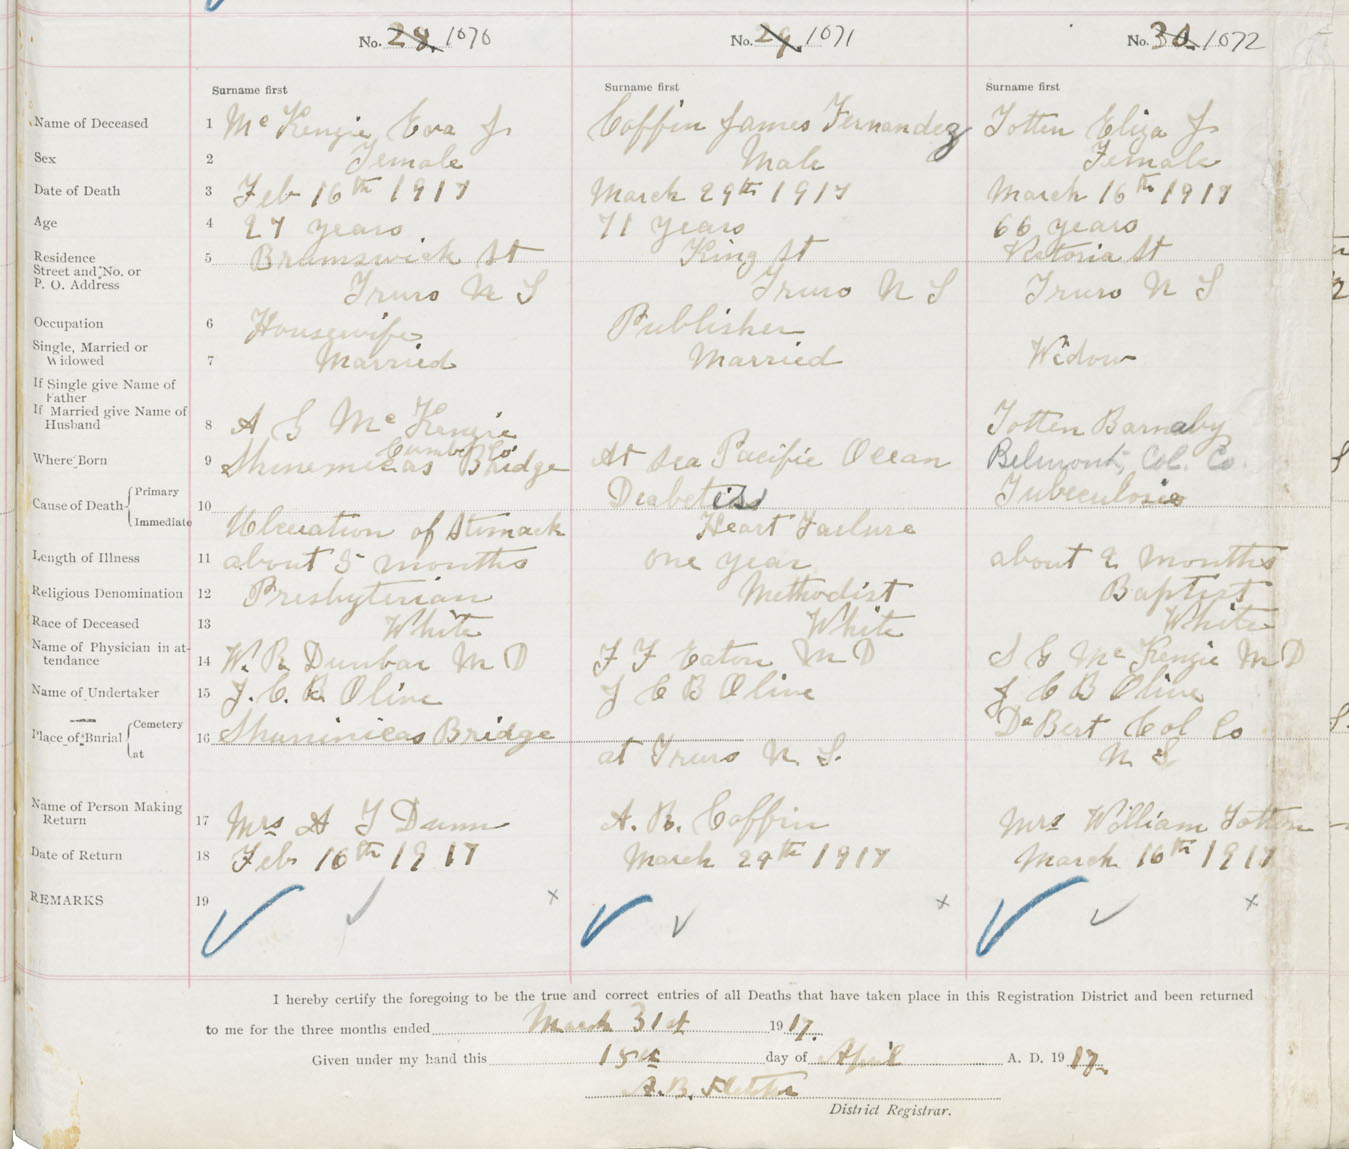 No. 28. 1070 No. 29. 1071 No. 30. 1072
Surname first Surname first Surname first
Name of Deceased 1 Mc Kenzie Eva J Coffin James Fernandez Totten Eliza J
Sex 2 Female Male Female
Date of Death 3 Feb 16th 1917 March 29th 1917 March 16th 1917
Age 4 27 years 71 years 66 years
Residence Street and No. or P. O. Address 5 Brunswick St King St Victoria St
Truro N S Truro N S Truro N S
Occupation 6 Housewife Publisher
Single, Married or Widowed 7 Married Married Widow
If Single give Name of Father
If Married give Name of Husband 8 A G Mc Kenzie Totten Barnaby
Cumb. Co.
Where Born 9 Shinemicas Bridge At Sea Pacific Ocean Belmont, Col. Co.
Cause of Death Primary 10 Diabetiss Tubeculosis
Immediate Ulceration of Stomack Heart Failure
Length of Illness 11 about 5 months one year about 2 months
Religious Denomination 12 Presbyterian Methodist Baptist
Race of Deceased 13 White White White
Name of Physician in attendance 14 W. R. Dunbar M D F F Eaton M D S G Mc Kenzie M D
Name of Undertaker 15 J. C. B. Olive J C B Olive J C B Olive
Place of Burial Cemetery 16 Shuninicas Bridge De Bert Col Co
at at Truro N. S. N. S
Name of Person Making Return 17 Mrs A T Dunn A. B. Coffin Mrs William Totten
Date of Return 18 Feb 16th 1917 March 29th 1917 March 16th 1917
REMARKS 19 x x x
I hereby certify the foregoing to be the true and correct entries of all Deaths that have taken place in this Registration District and been returned
to me for the three months ended March 31st 1917.
Given under my hand this 15th day of April A. D. 1917.
A. B. Fletcher
District Registrar.